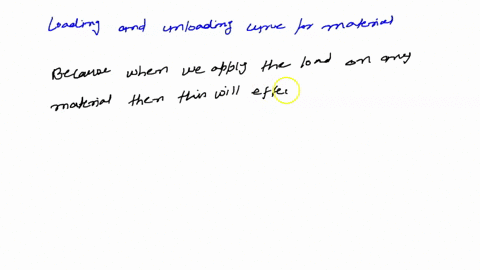 Loading and unloading curve for material
Because when we apply the load on any
material then this will effec